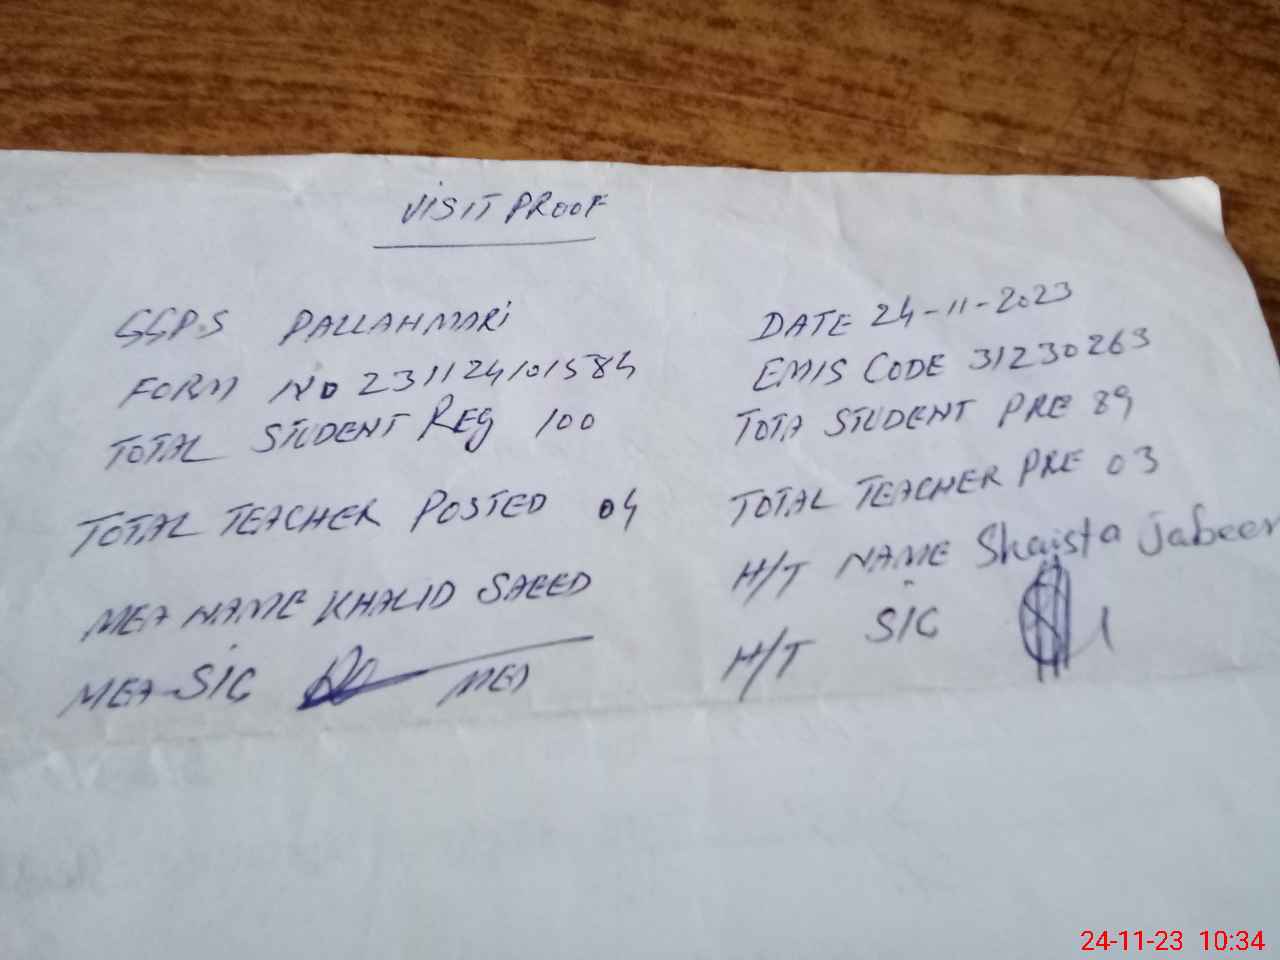 VISIT PROOF
GGPS PALLAHMARI DATE 24-11-2023
FORM NO 231124101584 EMIS CODE 31230263
TOTAL STUDENT Reg 100 TOTA STUDENT PRE 89
TOTAL TEACHER POSTED 04 TOTAL TEACHER PRE 03
MEA NAME KHALID SAEED H/T NAME Shaista Jabeen
MEA SIG MEA H/T SIG
24-11-23 10:34